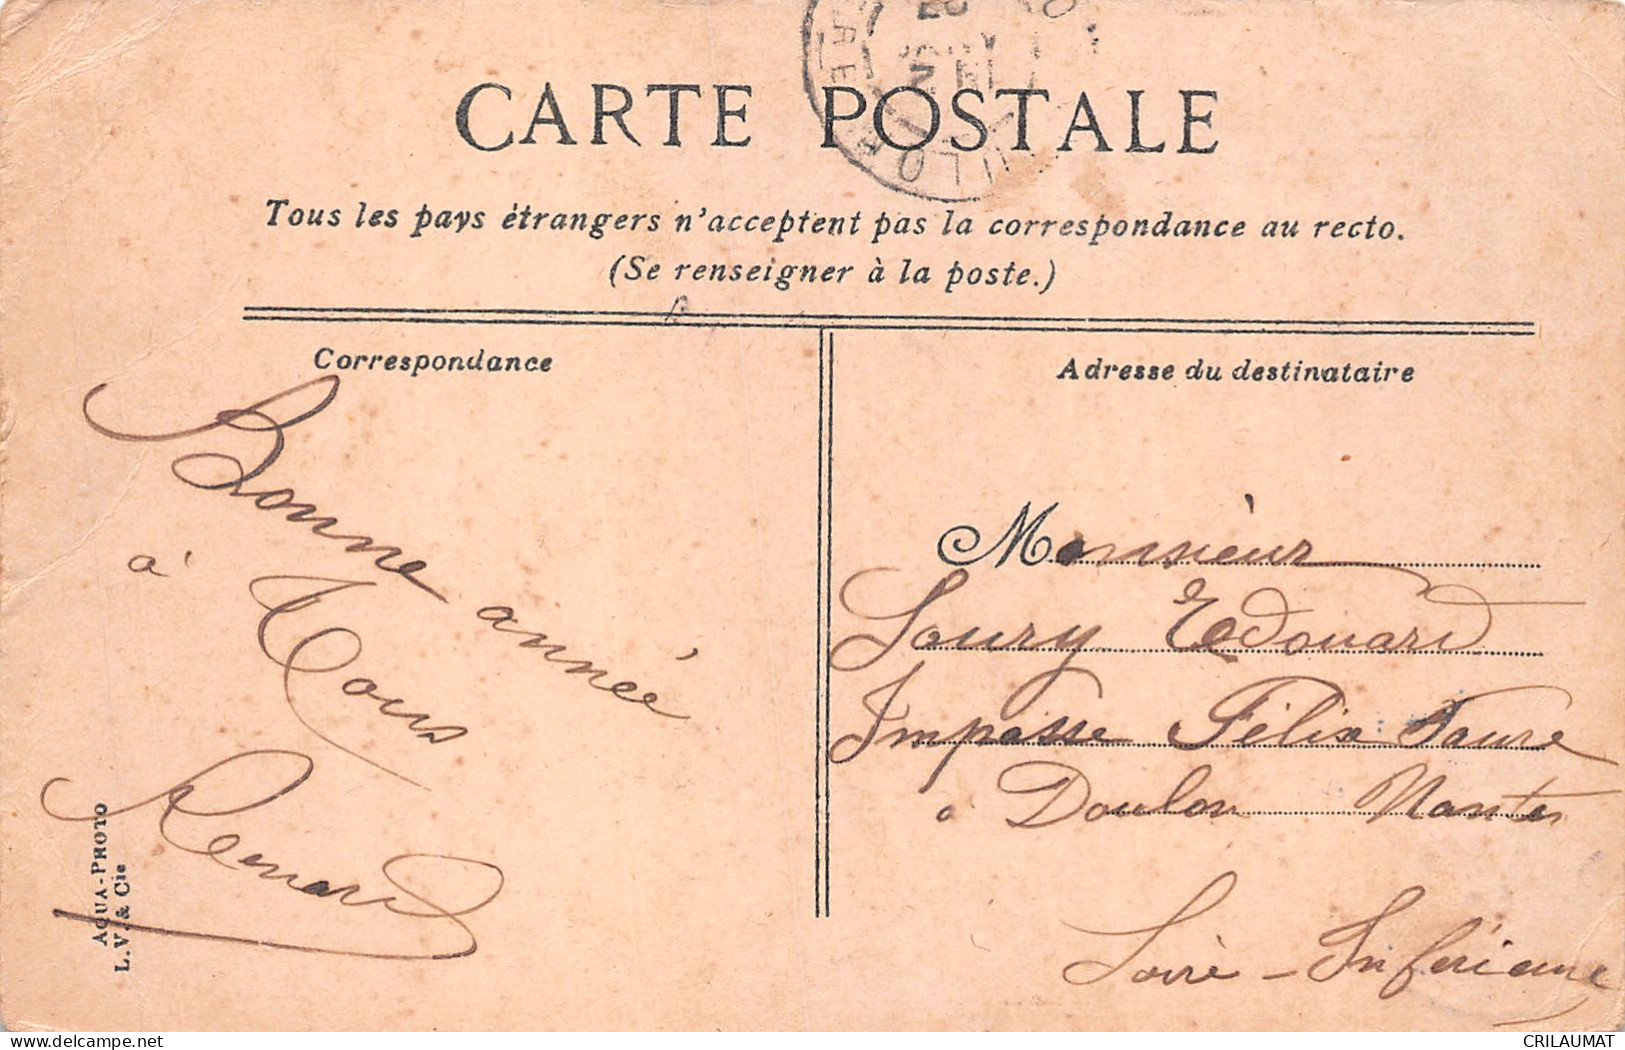 CARTE POSTALE
Tous les pays étrangers n'acceptent pas la correspondance au recto.
(Se renseigner à la poste.)
Correspondance
Bonne année
à Tous
Renard
AQUA-PHOTO
L. V. & Cie
Adresse du destinataire
Monsieur
Soury Edouard
Impasse Félix Faure
à Doulon Nantes
Loire-Inférieure
CRILAUMAT